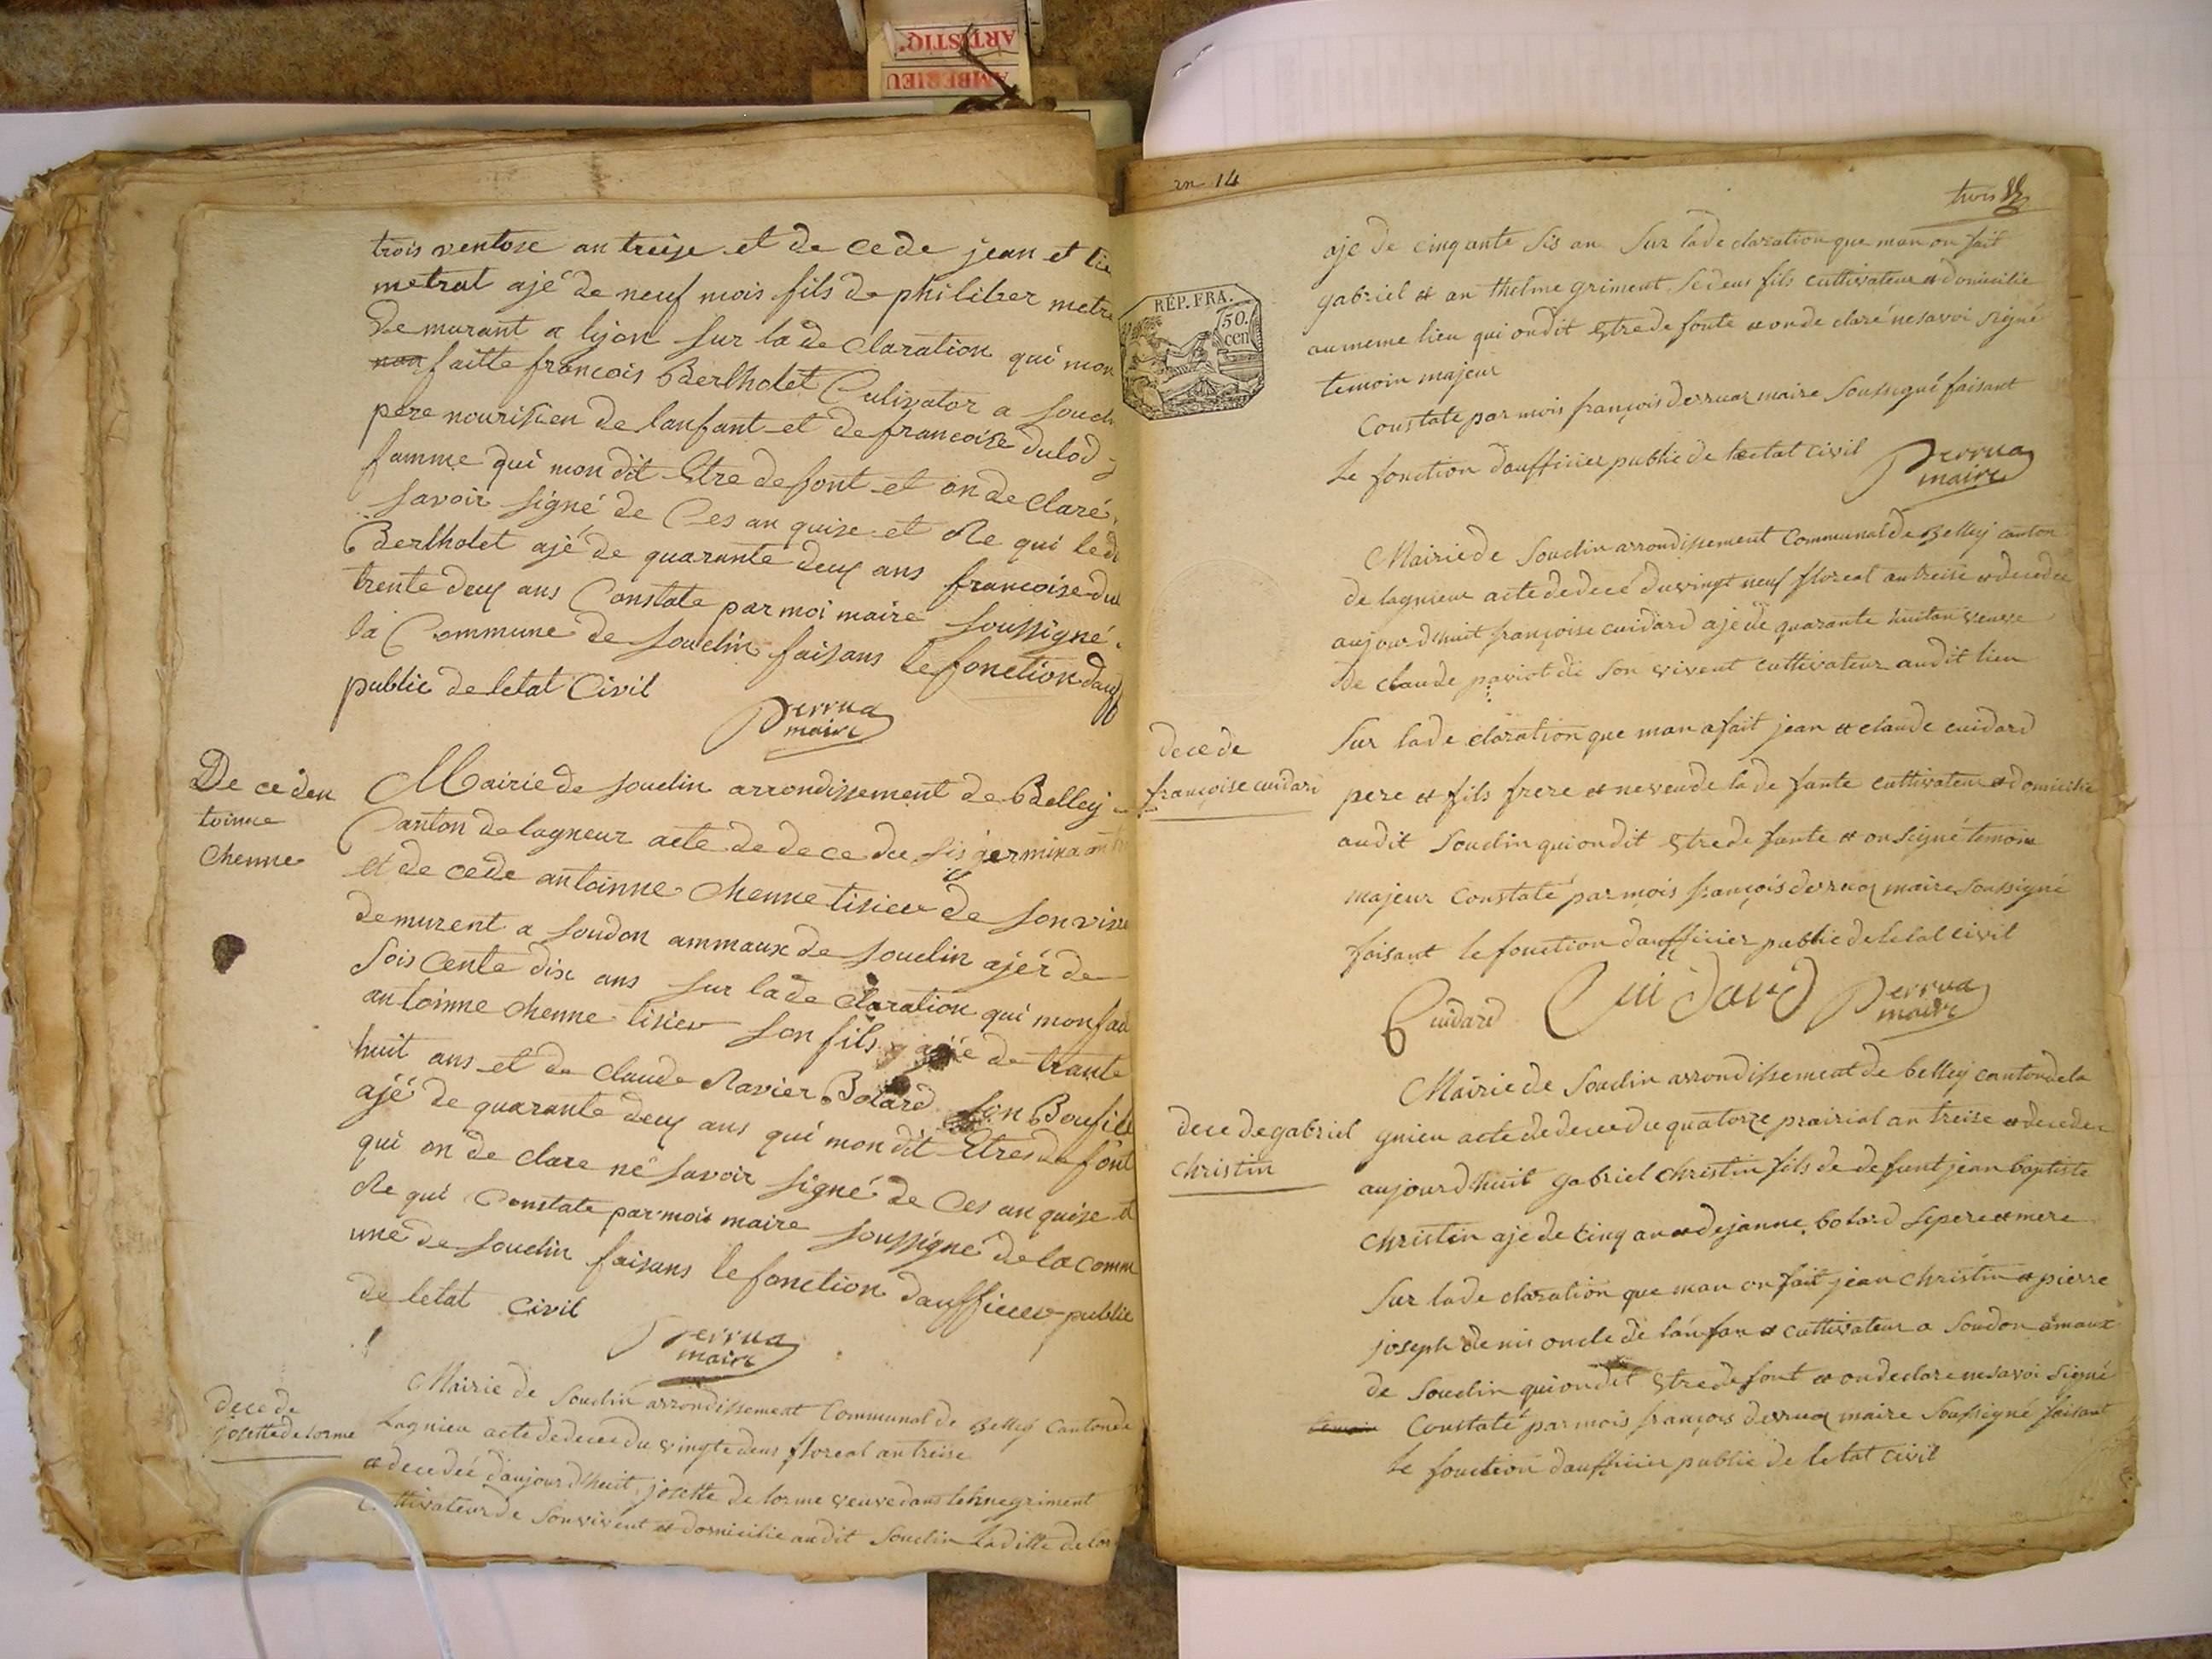 ARTISTIQ
AMBERIEU
trois ventose an treise et de cede jean et tie
metrat ajé de neuf mois fils de philiber metra
demurant a lyon sur la de claration qui mon
faitte francois Bertholet Culivator a soucl
pere nourisien de lanfant et de francoise dulod
famme qui mon dit Etre defont et on de claré
savoir signé de Ces an quise et Re qui le d
Bertholet ajé de quarante deux ans francoise du
trente deux ans Constate par moi maire soussigné
la Commune de souclin faisans le fonction dauf
public de letat Civil
Derrua
maire
De ce den
toinne
Chenne
Mairie de souclin arrondissement de Belley
Canton de lagneur acte de de ce du sis germina an
et de cede antoinne Chenne tisier de son vive
demurent a soudon ammaux de souclin ajér de
soiscente dix ans sur la de claration qui mon fai
antoinne Chenne tisier son fils ajée de trante
huit ans et de claude Ravier Botard son Boufils
ajé de quarante deux ans qui mon dit Etre de font
qui on de clare né savoir signé de Ces an quise et
Re qui Constate par mois maire soussigné de la Comm
une de souclin faisans le fonction daufficier public
de letat Civil
Derrua
maire
dece de
josette de lorme
Mairie de Souclin arrondissement Communal de Belley Canton de
Lagnieu acte de decee du vingte deus floreal an treise
et decedeé daujourdhuit josette de lorme veuve dans telme griment
Cultivateur de Son vivent et domicilie au dit Souclin Laditte de lor
an 14
trois
aje de cinquante sis an Sur la de claration que man on fait
gabriel et an thelme griment Sedeus fils cultivateur et domicilie
au meme lieu qui on dit Etre de fonte et on de claré ne savoi signé
temoin majeur
Constate par mois françois derruaz maire Soussigné faisant
Le fonction daufficier public de letat civil
Derrua
maire
RÉP. FRA.
50.
cen
Mairie de Souclin arrondissement Communal de Belley canton
de lagnieur acte de decé du vingt neuf floreal an treise et decedee
aujourdhuit françoise cuidard aje de quarante huit an veuve
de claude paviot de Son vivent cultivateur au dit lieu
dece de
françoise cuidard
Sur la de claration que man a fait jean et claude cuidard
pere et fils frere et neveu de la de fante cultivateur et domicilie
au dit Souclin qui on dit Etre de fante et on Signé temoin
majeur Constaté par mois françois derruaz maire Soussigné
faisant le fonction daufficier public de letat civil
Cuidard Cuidard Derrua
maire
dece de gabriel
christin
Mairie de Souclin arrondissement de belley canton de la
gnieu acte de decee du quatorze prairial an treise et decedee
aujourdhuit gabriel christin fils de defunt jean baptiste
christin aje de cinq an et de janne botard Se pere et mere
Sur la de claration que man on fait jean christin et pierre
joseph denis oncle de lanfan et cultivateur a Soudon amaux
de Souclin qui on dit Etre de font et on declare ne savoi signé
Constaté par mois françois derruaz maire Soussigné faisant
le fonction daufficier public de letat civil